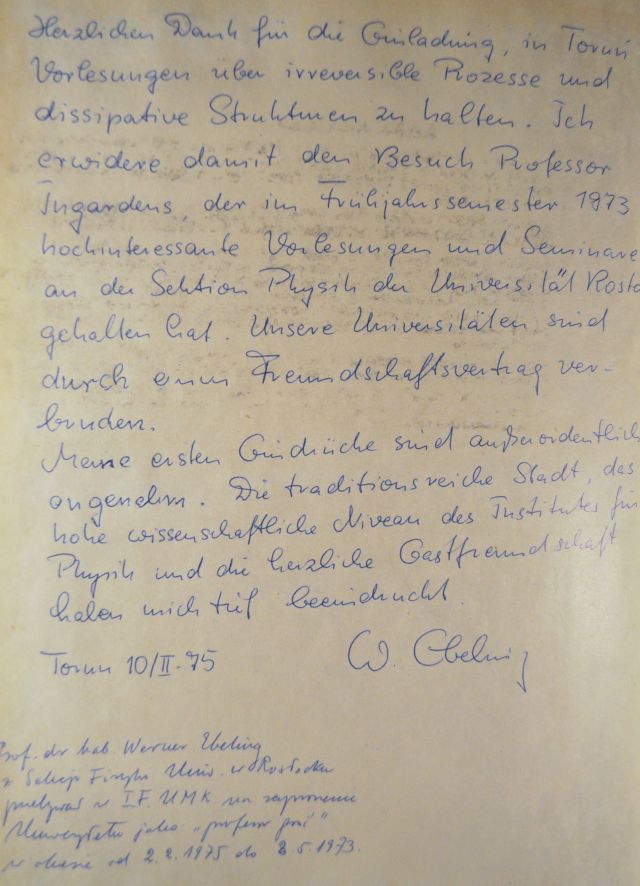 Herzlichen Dank für die Einladung, in Toruń
Vorlesungen über irreversible Prozesse und
dissipative Strukturen zu halten. Ich
erwidere damit den Besuch Professor
Ingardens, der im Frühjahrssemester 1973
hochinteressante Vorlesungen und Seminare
an der Sektion Physik der Universität Rosto
gehalten hat. Unsere Universitäten sind
durch einen Freundschaftsvertrag ver-
bunden.
Meine ersten Eindrücke sind außerordentlich
angenehm. Die traditionsreiche Stadt, das
hohe wissenschaftliche Niveau des Institutes für
Physik und die herzliche Gastfreundschaft
haben mich tief beeindruckt.
Torun 10/II.75 W. Ebeling
Prof. dr hab. Werner Ebeling
z Sekcji Fizyki Uniw. w Rostocku
przebywał w I.F. UMK na zaproszenie
Uniwersytetu jako „profesor gość"
w okresie od 2.2.1975 do 8.5.1973.